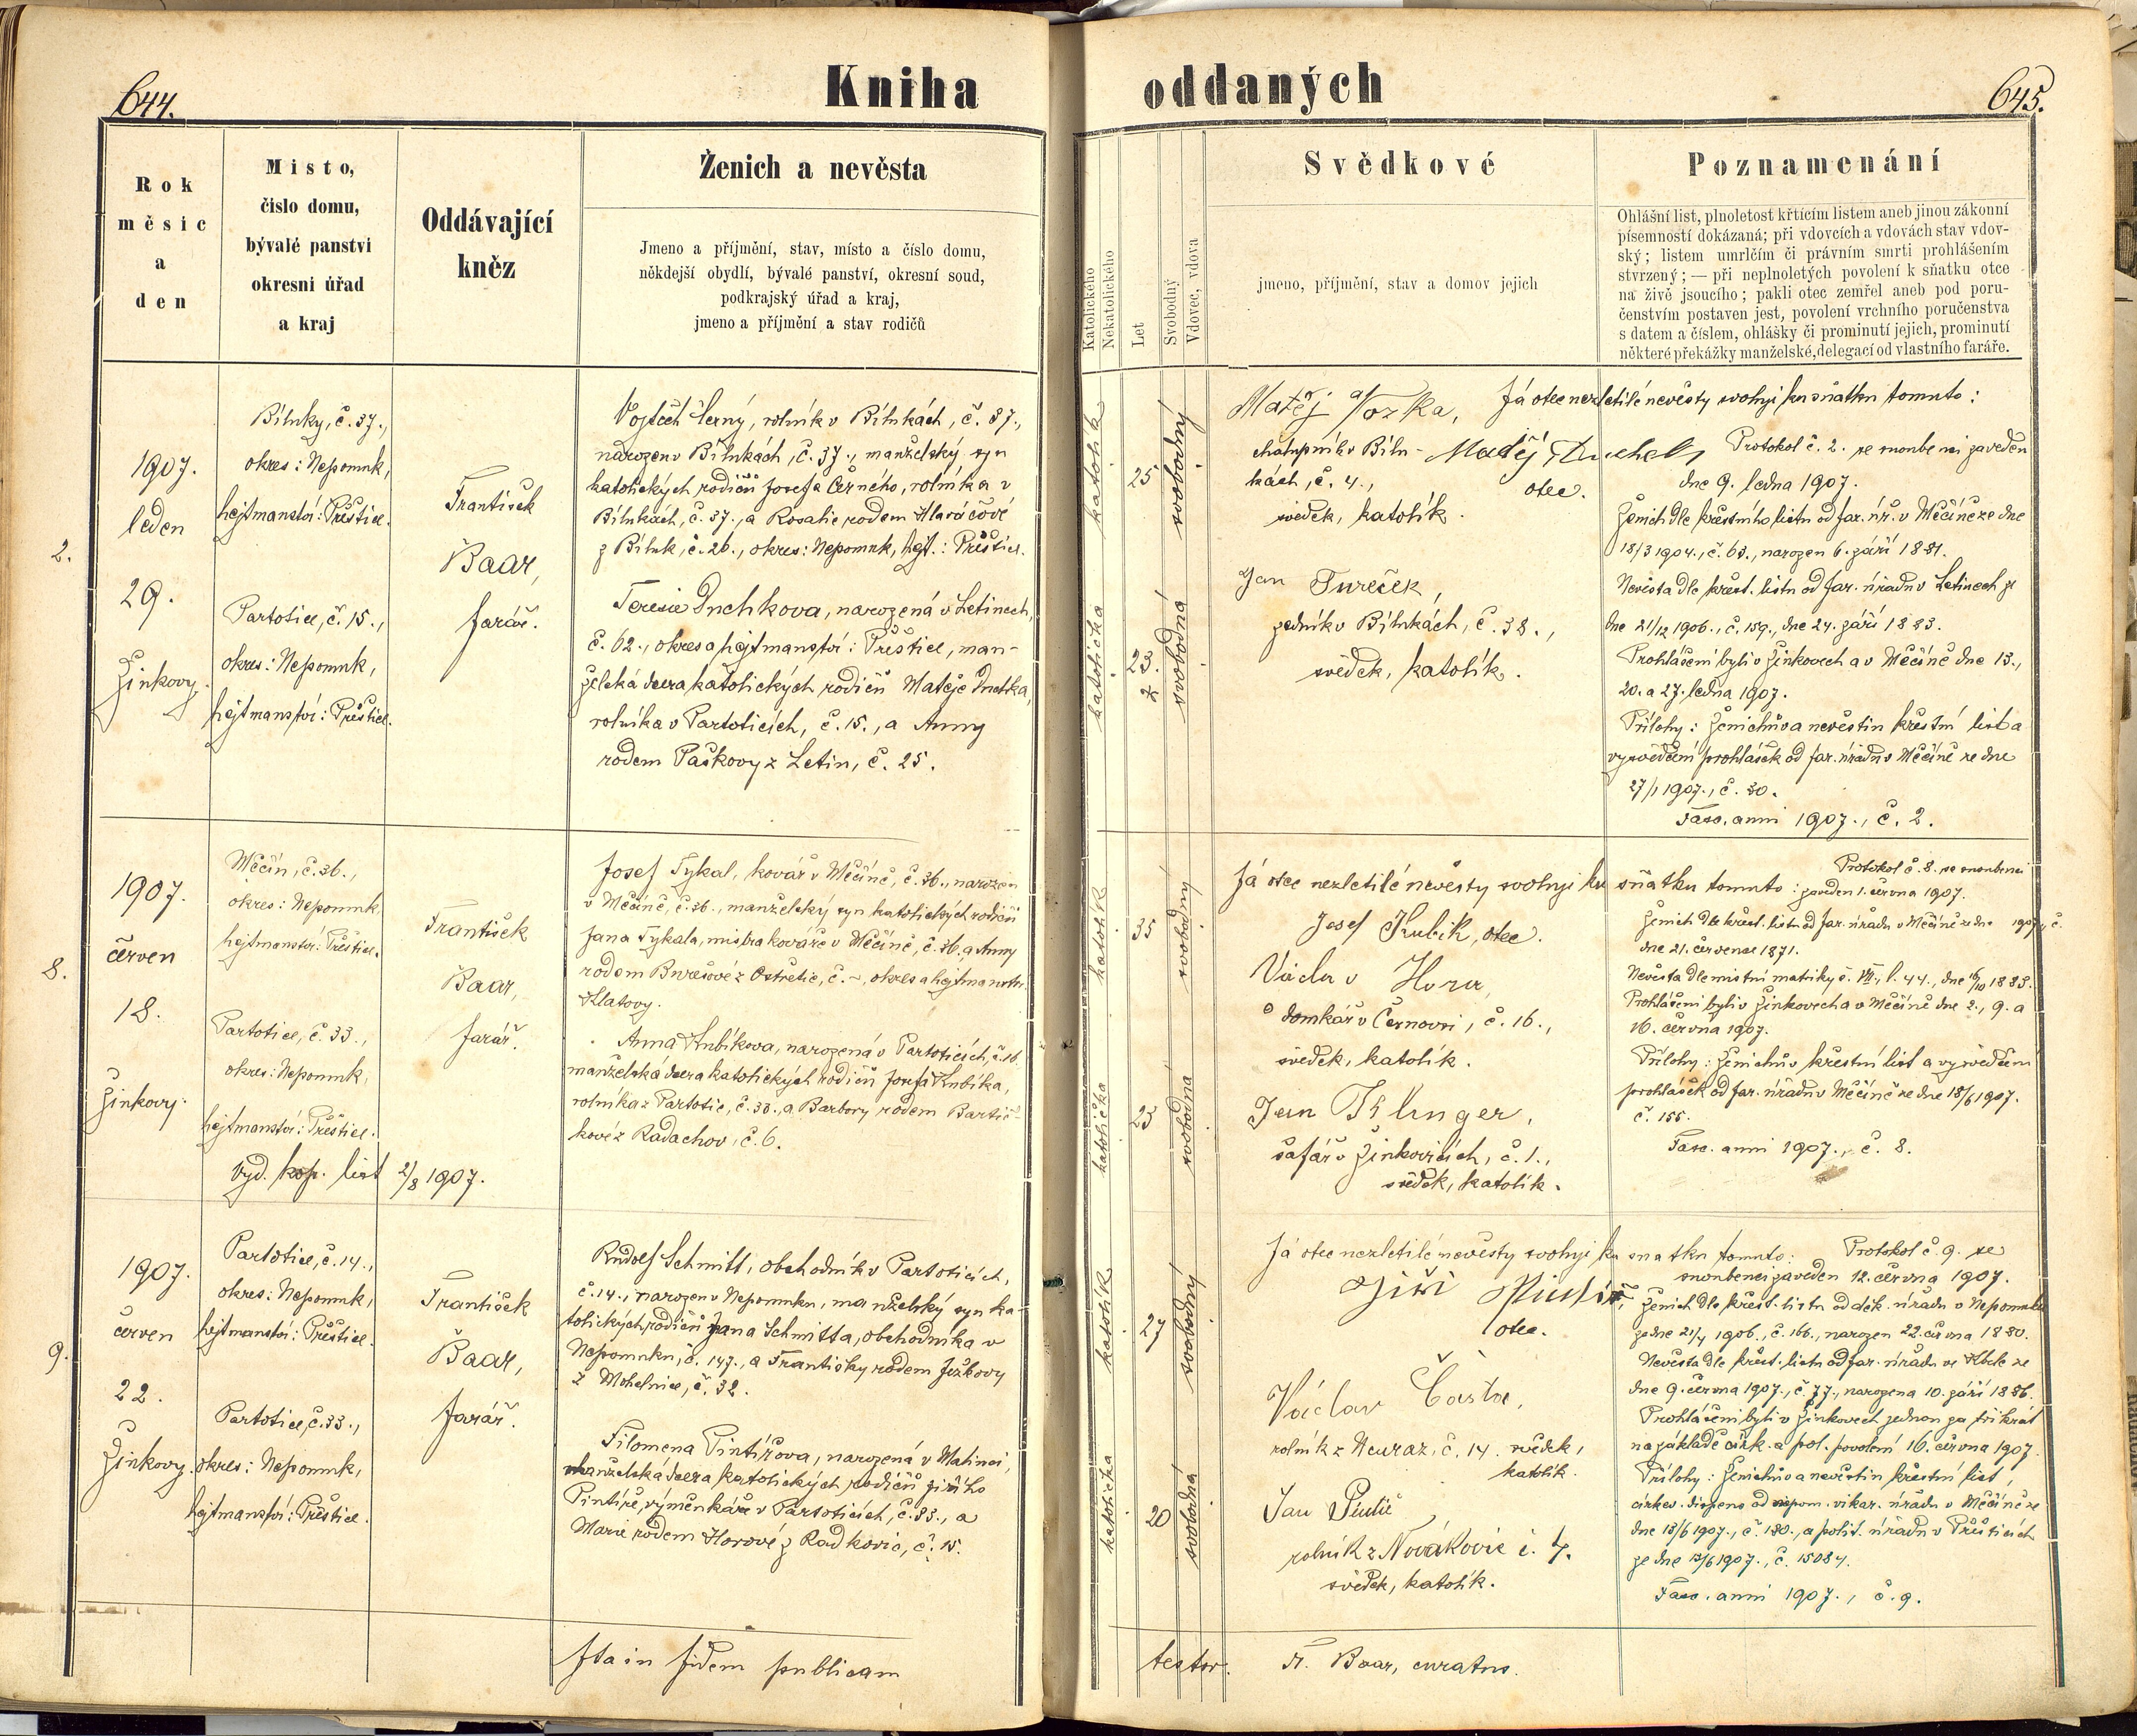 644.
Kniha
oddaných
645.
Rok
měsíc
a
den
Místo,
číslo domu,
bývalé panství
okresní úřad
a kraj
Oddávající
kněz
Ženich a nevěsta
Jmeno a příjmění, stav, místo a číslo domu,
někdejší obydlí, bývalé panství, okresní soud,
podkrajský úřad a kraj,
jmeno a příjmění a stav rodičů
Katolického
Nekatolického
Let
Svobodný
Vdovec, vdova
Svědkové
jmeno, příjmění, stav a domov jejich
Poznamenání
Ohlášní list, plnoletost křtícím listem aneb jinou zákonní
písemností dokázaná; při vdovcích a vdovách stav vdov-
ský; listem umrlčím či právním smrti prohlášením
stvrzený; — při neplnoletých povolení k sňatku otce
na živě jsoucího; pakli otec zemřel aneb pod poru-
čenstvím postaven jest, povolení vrchního poručenstva
s datem a číslem, ohlášky či prominutí jejich, prominutí
některé překážky manželské, delegací od vlastního faráře.
2.
1907.
leden
29.
Žinkovy.
Bíluky, č. 37.,
okres: Nepomuk,
hejtmanství: Přeštice.
Partotice, č. 15.,
okres: Nepomuk,
hejtmanství: Přeštice.
František
Baar,
farář.
Vojtěch Černý, rolník v Bílukách, č. 37.,
narozen v Bílukách, č. 37., manželský syn
katolických rodičů Josefa Černého, rolníka v
Bílukách, č. 37., a Rosalie rodem Hlaváčové
z Bíluk, č. 26., okres: Nepomuk, hejt.: Přeštice.
Teresie Duchkova, narozená v Letinech,
č. 62., okres a hejtmanství: Přeštice, man-
želská dcera katolických rodičů Matěje Duchka,
rolníka v Partoticích, č. 15., a Anny
rodem Paškovy z Letin, č. 25.
katolík
25
svobodný
katolička
23.
svobodná
Matěj
chalupník v Bílu-
kách, č. 4.,
svědek, katolík.
Já otec nezletilé nevěsty svoluji ku sňatku tomuto:
Matěj Duchek,
otec.
Jan Tureček,
zedník v Bílukách, č. 38.,
svědek, katolík.
Protokol č. 2. se snoubenci zaveden
dne 9. ledna 1907.
Ženich dle křestního listu od far. úř. v Měčíně ze dne
18/3 1904., č. 63., narozen 6. září 1881.
Nevěsta dle křest. listu od far. úřadu v Letinech ze
dne 21/12 1906., č. 159., dne 24. září 1883.
Prohlášeni byli v Žinkovech a v Měčíně dne 13.,
20. a 27. ledna 1907.
Přílohy: Ženichův a nevěstin křestní list a
vysvědčení prohlášek od far. úřadu v Měčíně ze dne
27/1 1907., č. 30.
Fasc. anni 1907., č. 2.
8.
1907.
červen
18.
Žinkovy.
Měčín, č. 36.,
okres: Nepomuk,
hejtmanství: Přeštice.
Partotice, č. 33.,
okres: Nepomuk,
hejtmanství: Přeštice.
Vyd. kop. list 2/8 1907.
František
Baar,
farář.
Josef Tykal, kovář v Měčíně, č. 36., narozen
v Měčíně, č. 36., manželský syn katolických rodičů
Jana Tykala, mistra kováře v Měčíně, č. 36., a Anny
rodem Burešové z Ostřetic, č. –, okres a hejtmanství
Klatovy.
Anna Kubíkova, narozená v Partoticích, č. 16.
manželská dcera katolických rodičů Josefa Kubíka,
rolníka z Partotic, č. 33., a Barbory rodem Bartič-
kové z Radachov, č. 6.
katolík
35
svobodný
katolička
23
svobodná
Já otec nezletilé nevěsty svoluji ku sňatku tomuto:
Josef Kubík, otec.
Václav Hora,
domkář v Černovsi, č. 16.,
svědek, katolík.
Jan Klinger,
šafář v Žinkovicích, č. 1.,
svědek, katolík.
Protokol č. 8. se snoubenci
zaveden 1. června 1907.
Ženich dle křest. listu od far. úřadu v Měčíně ze dne 1907, č.
dne 21. července 1871.
Nevěsta dle místní matriky č. VII., l. 44., dne 1883.
Prohlášeni byli v Žinkovech a v Měčíně dne 2., 9. a
16. června 1907.
Přílohy: Ženichův křestní list a vysvědčení
prohlášek od far. úřadu v Měčíně ze dne 18/6 1907.
č. 155.
Fasc. anni 1907., č. 8.
9.
1907.
červen
22.
Žinkovy.
Partotice, č. 14.,
okres: Nepomuk,
hejtmanství: Přeštice.
Partotice, č. 33.,
okres: Nepomuk,
hejtmanství: Přeštice.
František
Baar,
farář.
Rudolf Schmitt, obchodník v Partoticích,
č. 14., narozen v Nepomuku, manželský syn ka-
tolických rodičů Jana Schmitta, obchodníka v
Nepomuku, č. 147., a Františky rodem Ježkovy
z Mohelnice, č. 32.
Filomena Pintířova, narozená v Malinci,
manželská dcera katolických rodičů Jiřího
Pintíře, výměnkáře v Partoticích, č. 33., a
Marie rodem Horové z Radkovic, č. 15.
katolík
27
svobodný
katolička
20
svobodná
Já otec nezletilé nevěsty svoluji ku snatku tomuto:
Jiří Pintíř,
otec.
Václav Časta,
rolník z Neuraz, č. 14. svědek,
katolík.
Jan
rolník z Novákovic č. 7.
svědek, katolík.
Protokol č. 9. se
snoubenci zaveden 12. června 1907.
Ženich dle křest. listu od děk. úřadu v Nepomuku
ze dne 21/4 1906., č. 166., narozen 22. června 1880.
Nevěsta dle křest. listu od far. úřadu ve Kbele ze
dne 9. června 1907., č. 77., narozena 10. září 1886.
Prohlášeni byli v Žinkovech jednou za třikrát
na základě círk. a pol. povolení 16. června 1907.
Přílohy: Ženichův a nevěstin křestní list,
církev. dispens od nepom. vikar. úřadu v Měčíně ze
dne 13/6 1907., č. 180., a polit. úřadu v Přešticích
ze dne 13/6 1907., č. 15084.
Fasc. anni 1907., č. 9.
Ita in fidem publicam
testor. Fr. Baar, curatus.